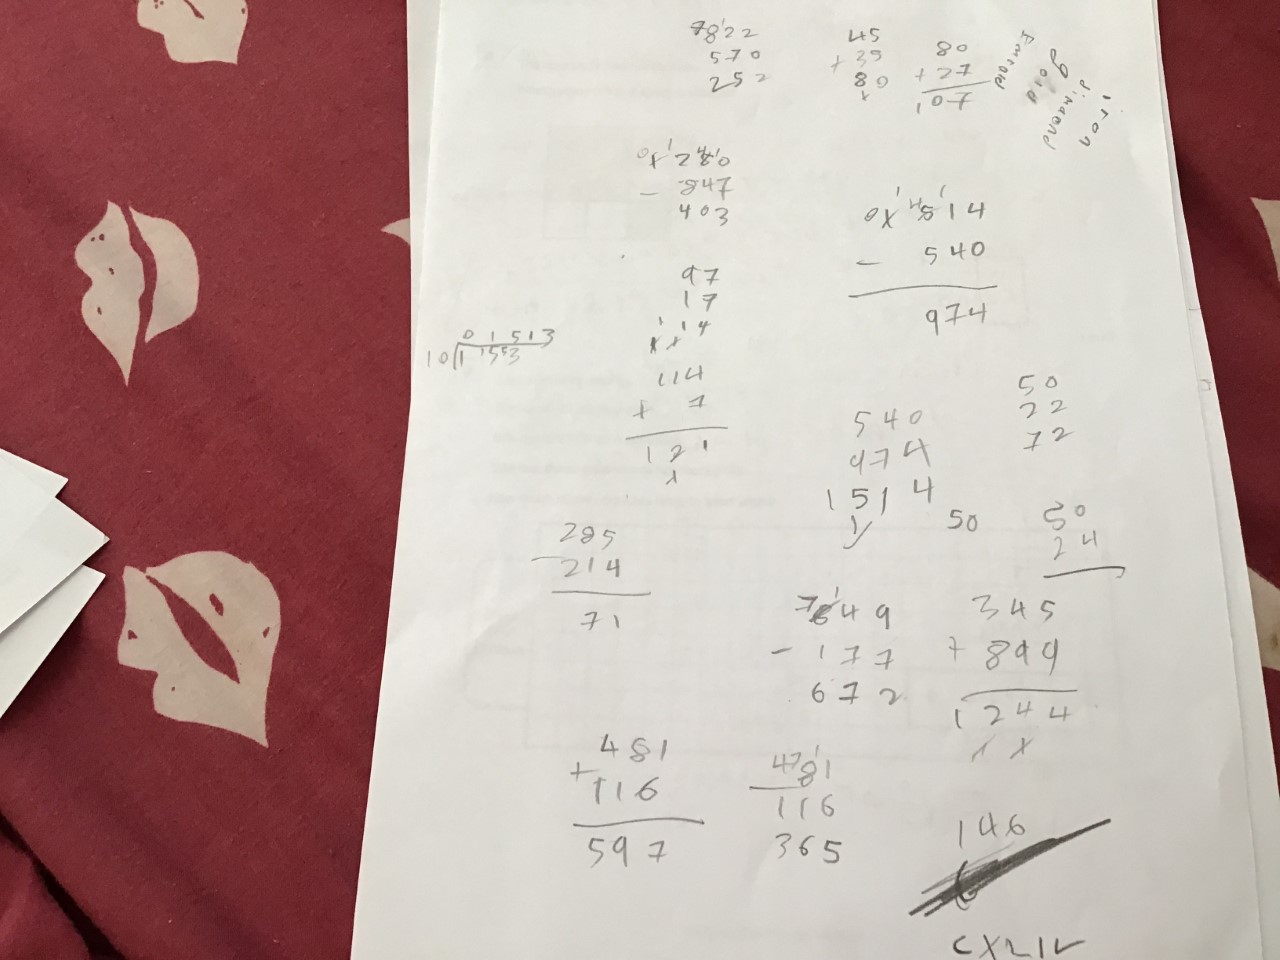 7822
570
252
45
+ 35
80
80
+ 27
107
Emerald
gold
diamond
iron
1250
- 847
403
1514
- 540
974
97
17
114
114
+ 7
121
01513
10
540
974
1514
50
22
72
50
50
24
285
- 214
71
849
- 177
672
345
+ 899
1244
481
+ 116
597
481
- 116
365
146
CXLIV